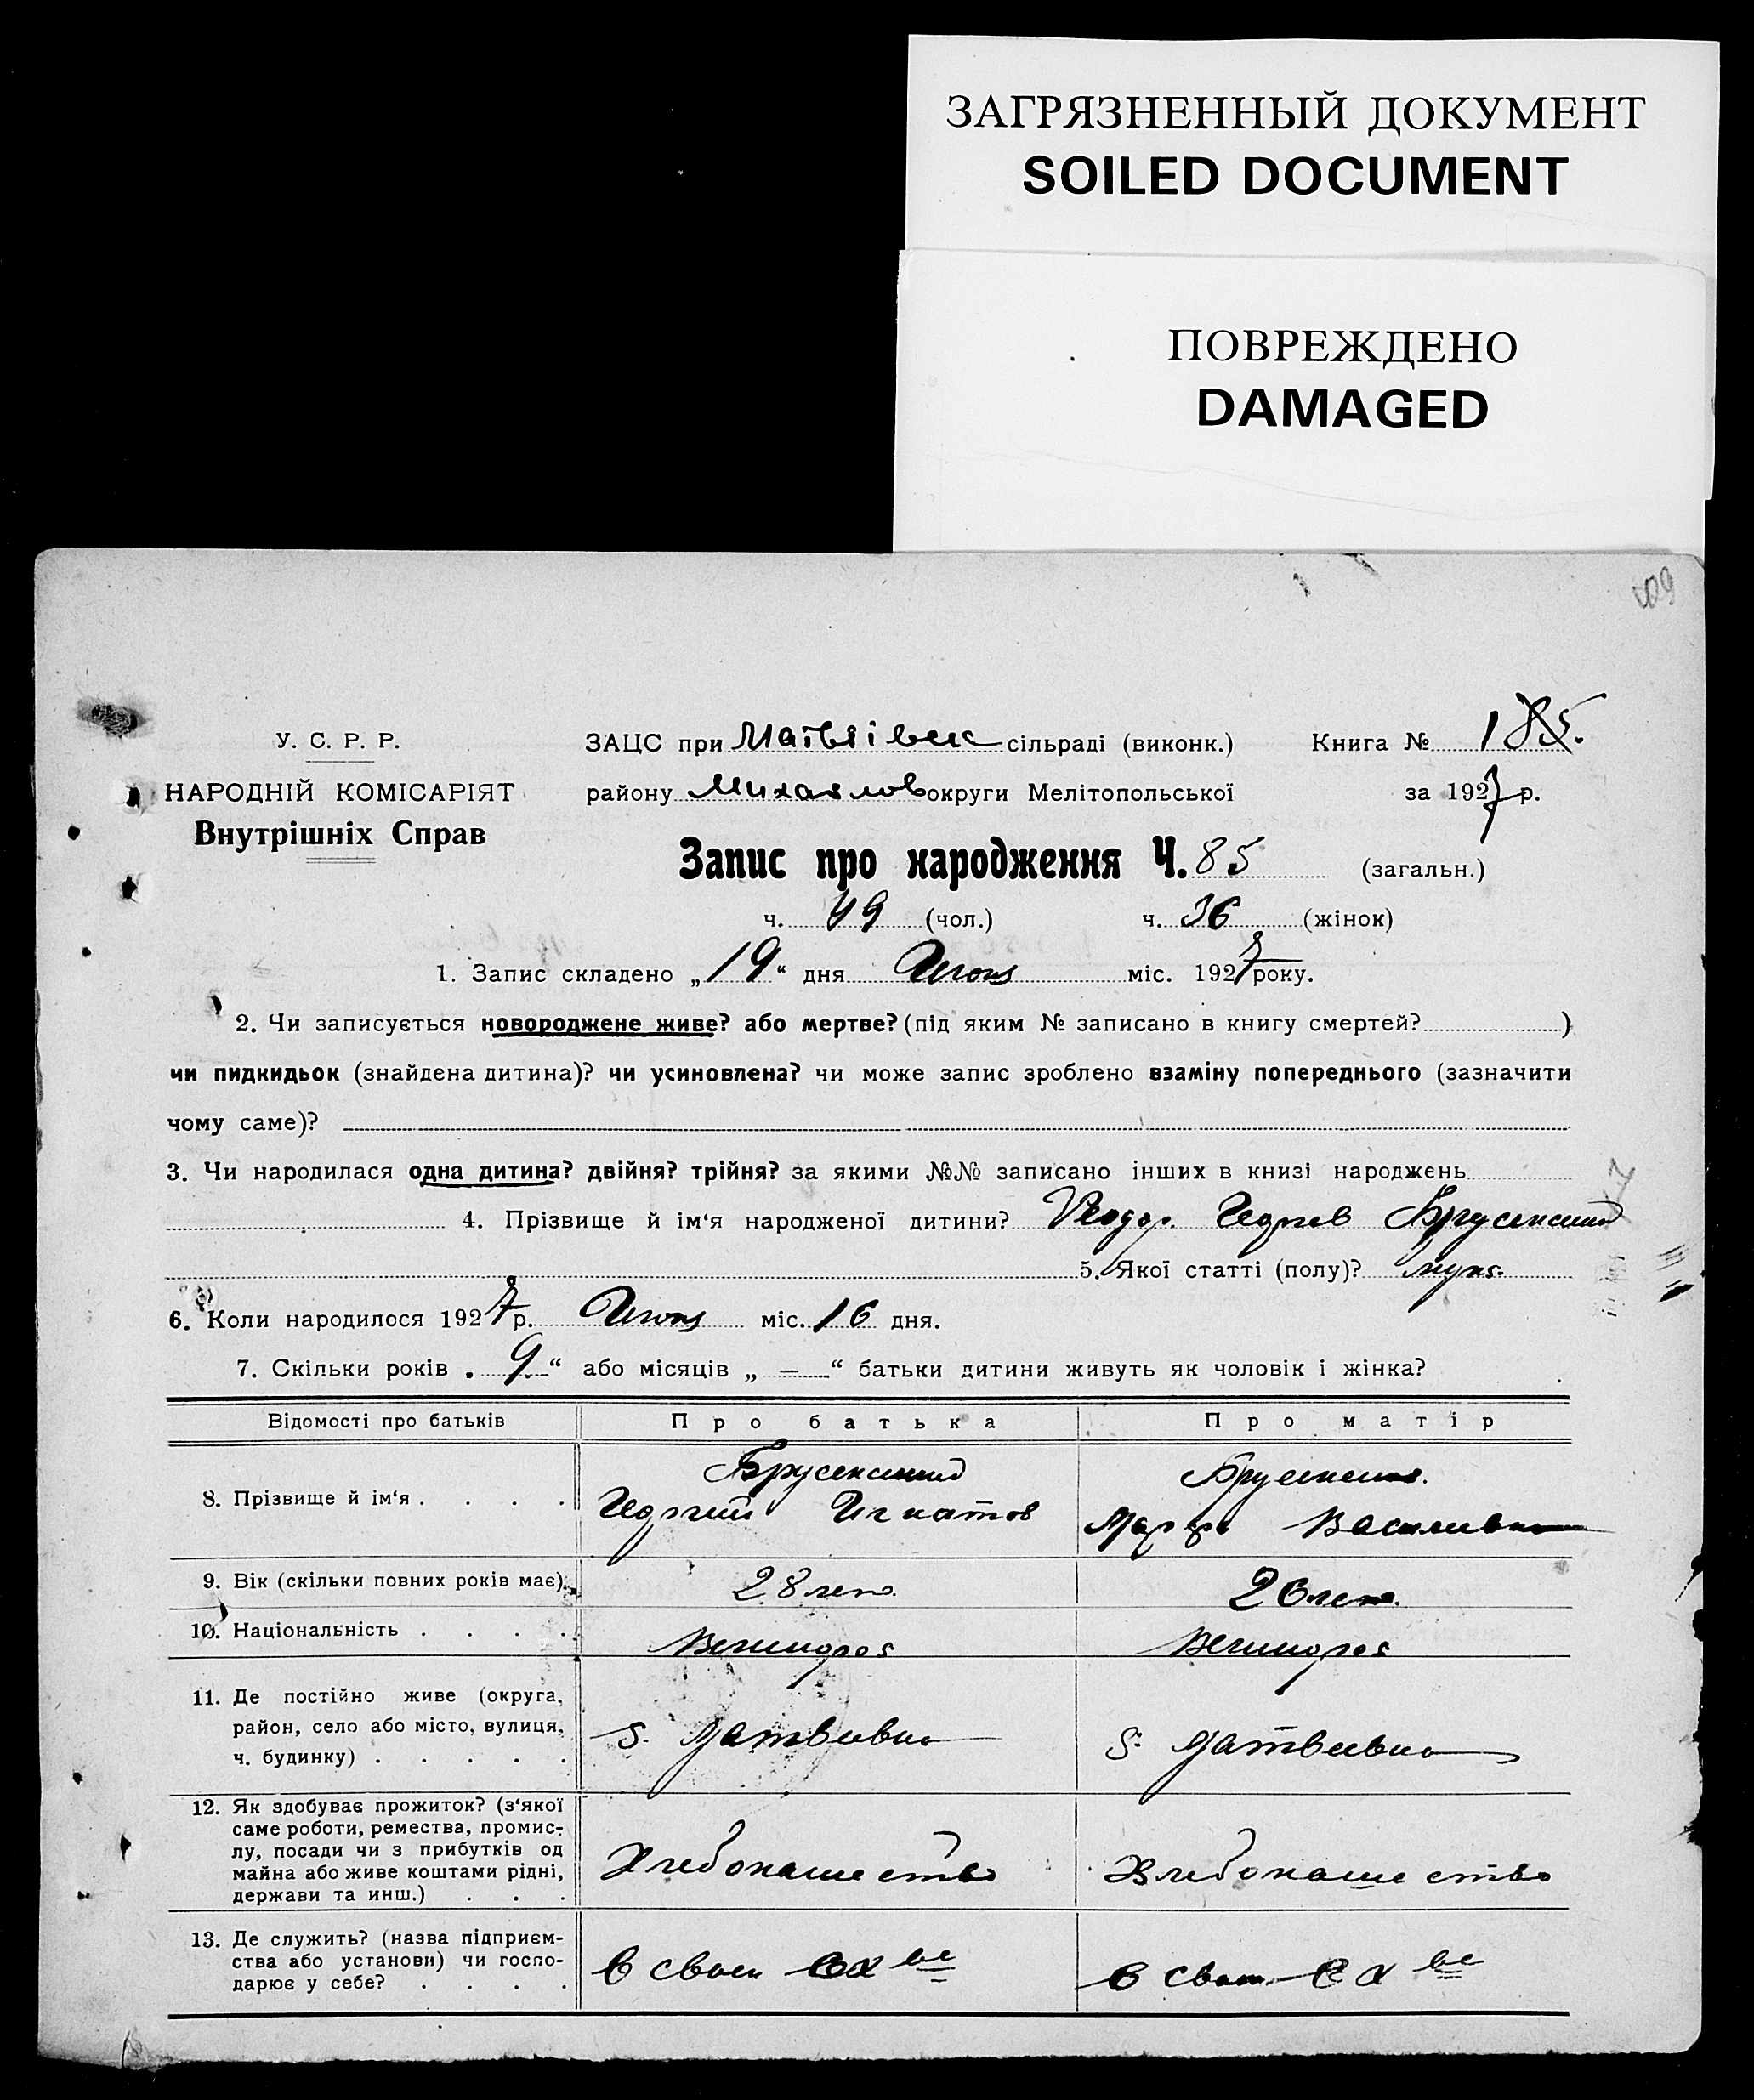 ЗАГРЯЗНЕННЫЙ ДОКУМЕНТ
SOILED DOCUMENT
ПОВРЕЖДЕНО
DAMAGED
409
У. С. Р. Р.
НАРОДНІЙ КОМІСАРІЯТ
Внутрішніх Справ
ЗАЦС при Матвіівск сільраді (виконк.) Книга № 185.
району Михайлов округи Мелітопольської за 1927 р.
Запис про народження Ч. 85 (загальн.)
ч. 49 (чол.) ч. 36 (жінок)
1. Запис складено „19“ дня Июня міс. 1927 року.
2. Чи записується новороджене живе? або мертве? (під яким № записано в книгу смертей? )
чи пидкидьок (знайдена дитина)? чи усиновлена? чи може запис зроблено взаміну попереднього (зазначити
чому саме)?
3. Чи народилася одна дитина? двійня? трійня? за якими №№ записано інших в книзі народжень
4. Прізвище й ім‘я народженої дитини? Феодор Геориев Брусенский
5. Якої статті (полу)? муж.
6. Коли народилося 1927 р. Июня міс. 16 дня.
7. Скільки років „9“ або місяців „—“ батьки дитини живуть як чоловік і жінка?
Відомості про батьків Про батька Про матір
8. Прізвище й ім‘я . . . . Брусенский Георгий Игнатов
Марфа Василивна
9. Вік (скільки повних років має). 28 лет. 26 лет.
10. Національність . . . . Великорос Великорос
11. Де постійно живе (округа,
район, село або місто, вулиця,
ч. будинку) . . . . .
S. Матвивка S. Матвеевка
12. Як здобуває прожиток? (з‘якої
саме роботи, ремества, промис-
лу, посади чи з прибутків од
майна або живе коштами рідні,
держави та инш.) . . .
Хлебопашество Хлебопашество
13. Де служить? (назва підприєм-
ства або установи) чи госпо-
дарює у себе? . . . .
В своем СХ ве В своем СХ ве